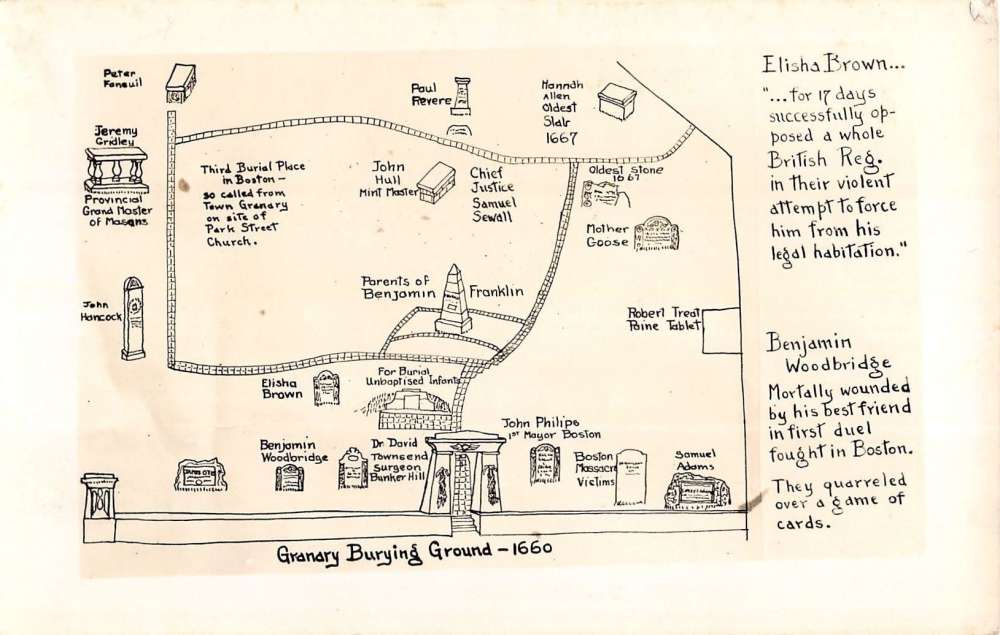 Peter
Faneuil
Paul
Revere
Hannah
Allen
Oldest
Slab
1667
Jeremy
Gridley
Provincial
Grand Master
of Masons
Third Burial Place
in Boston -
so called from
Town Granary
on site of
Park Street
Church.
John
Hull
Mint Master
Chief
Justice
Samuel
Sewall
Oldest Stone
1667
Mother
Goose
Parents of
Benjamin Franklin
John
Hancock
Robert Treat
Paine Tablet
Elisha
Brown
For Burial
Unbaptised Infants
Benjamin
Woodbridge
Dr. David
Townsend
Surgeon
Bunker Hill
John Philips
1st Mayor Boston
Boston
Massacre
Victims
Samuel
Adams
Granary Burying Ground - 1660
Elisha Brown...
"...for 17 days
successfully op-
posed a whole
British Reg.
in their violent
attempt to force
him from his
legal habitation."
Benjamin
Woodbridge
Mortally wounded
by his best friend
in first duel
fought in Boston.
They quarreled
over a game of
cards.